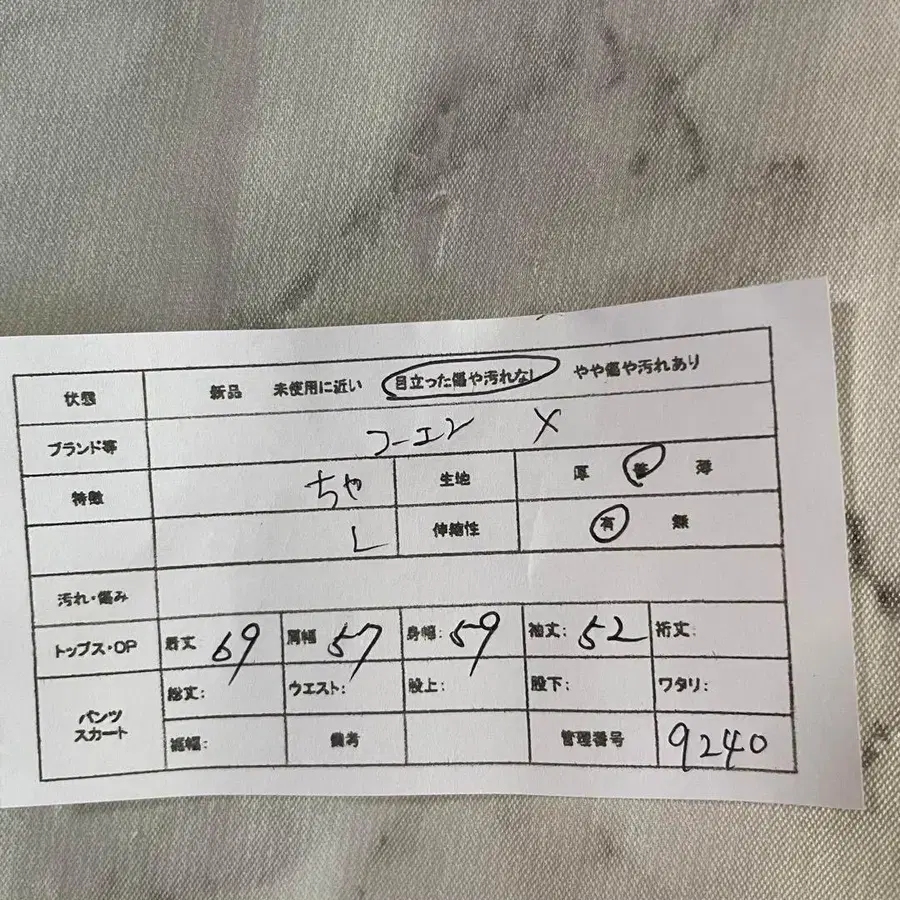 状態 新品 未使用に近い 目立った傷や汚れなし やや傷や汚れあり
ブランド等 コーエン メ
特徴 ちゃ 生地 厚 普 薄
L 伸縮性 有 無
汚れ・傷み
トップス・OP 着丈 69 肩幅 57 身幅: 59 袖丈: 52 裄丈:
パンツ スカート 総丈: ウエスト: 股上: 股下: ワタリ:
裾幅: 備考 管理番号 9240